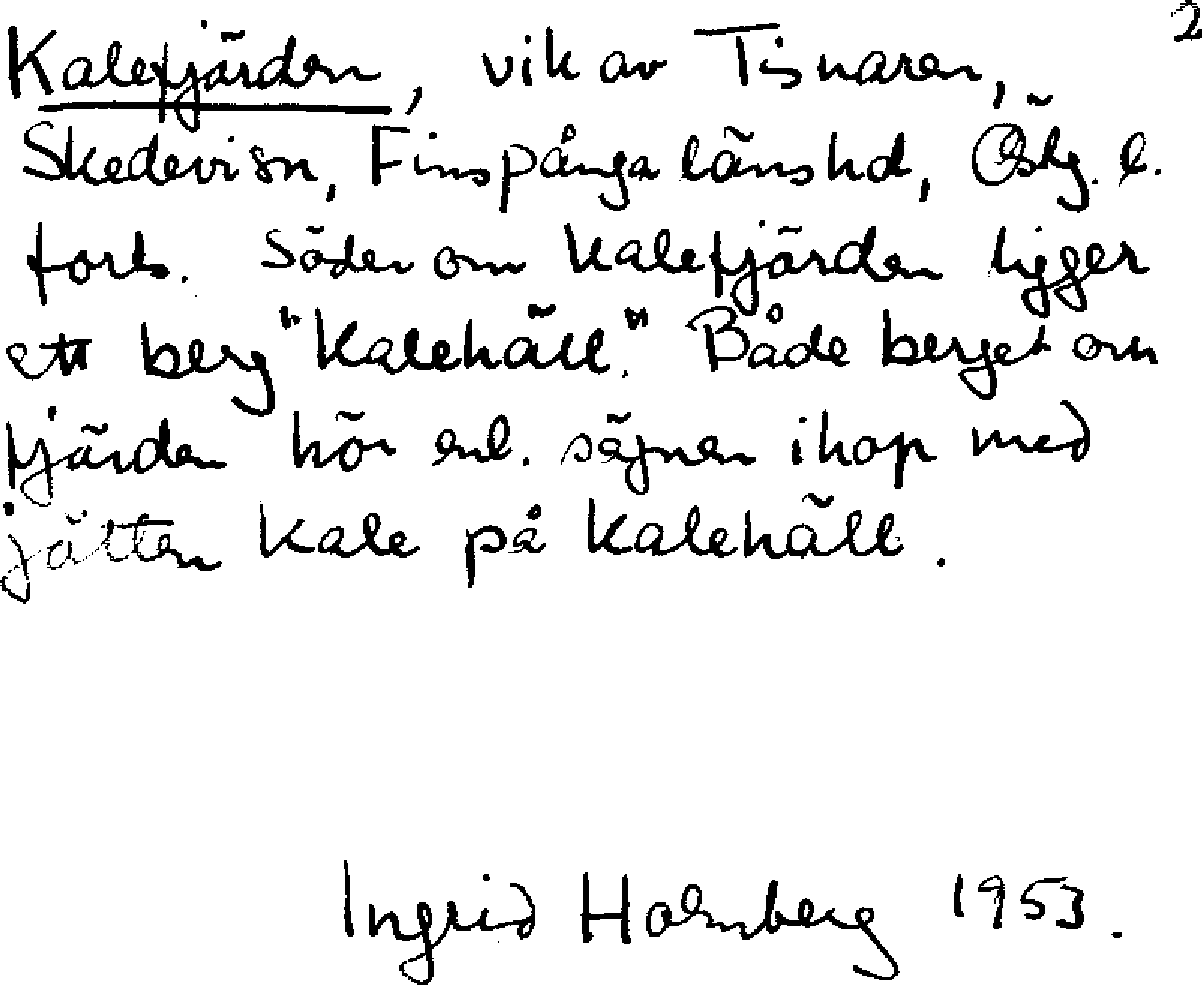 2
Kalefjärden, vik av Tisnaren,
Skedevi sn, Finspånga länshd, Östg. l.
forts. Söder om Kalefjärden ligger
ett berg "Kalehäll". Både berget om
fjärden hör enl. sägnen ihop med
jätten Kale på Kalehäll.
Ingrid Holmberg 1953.